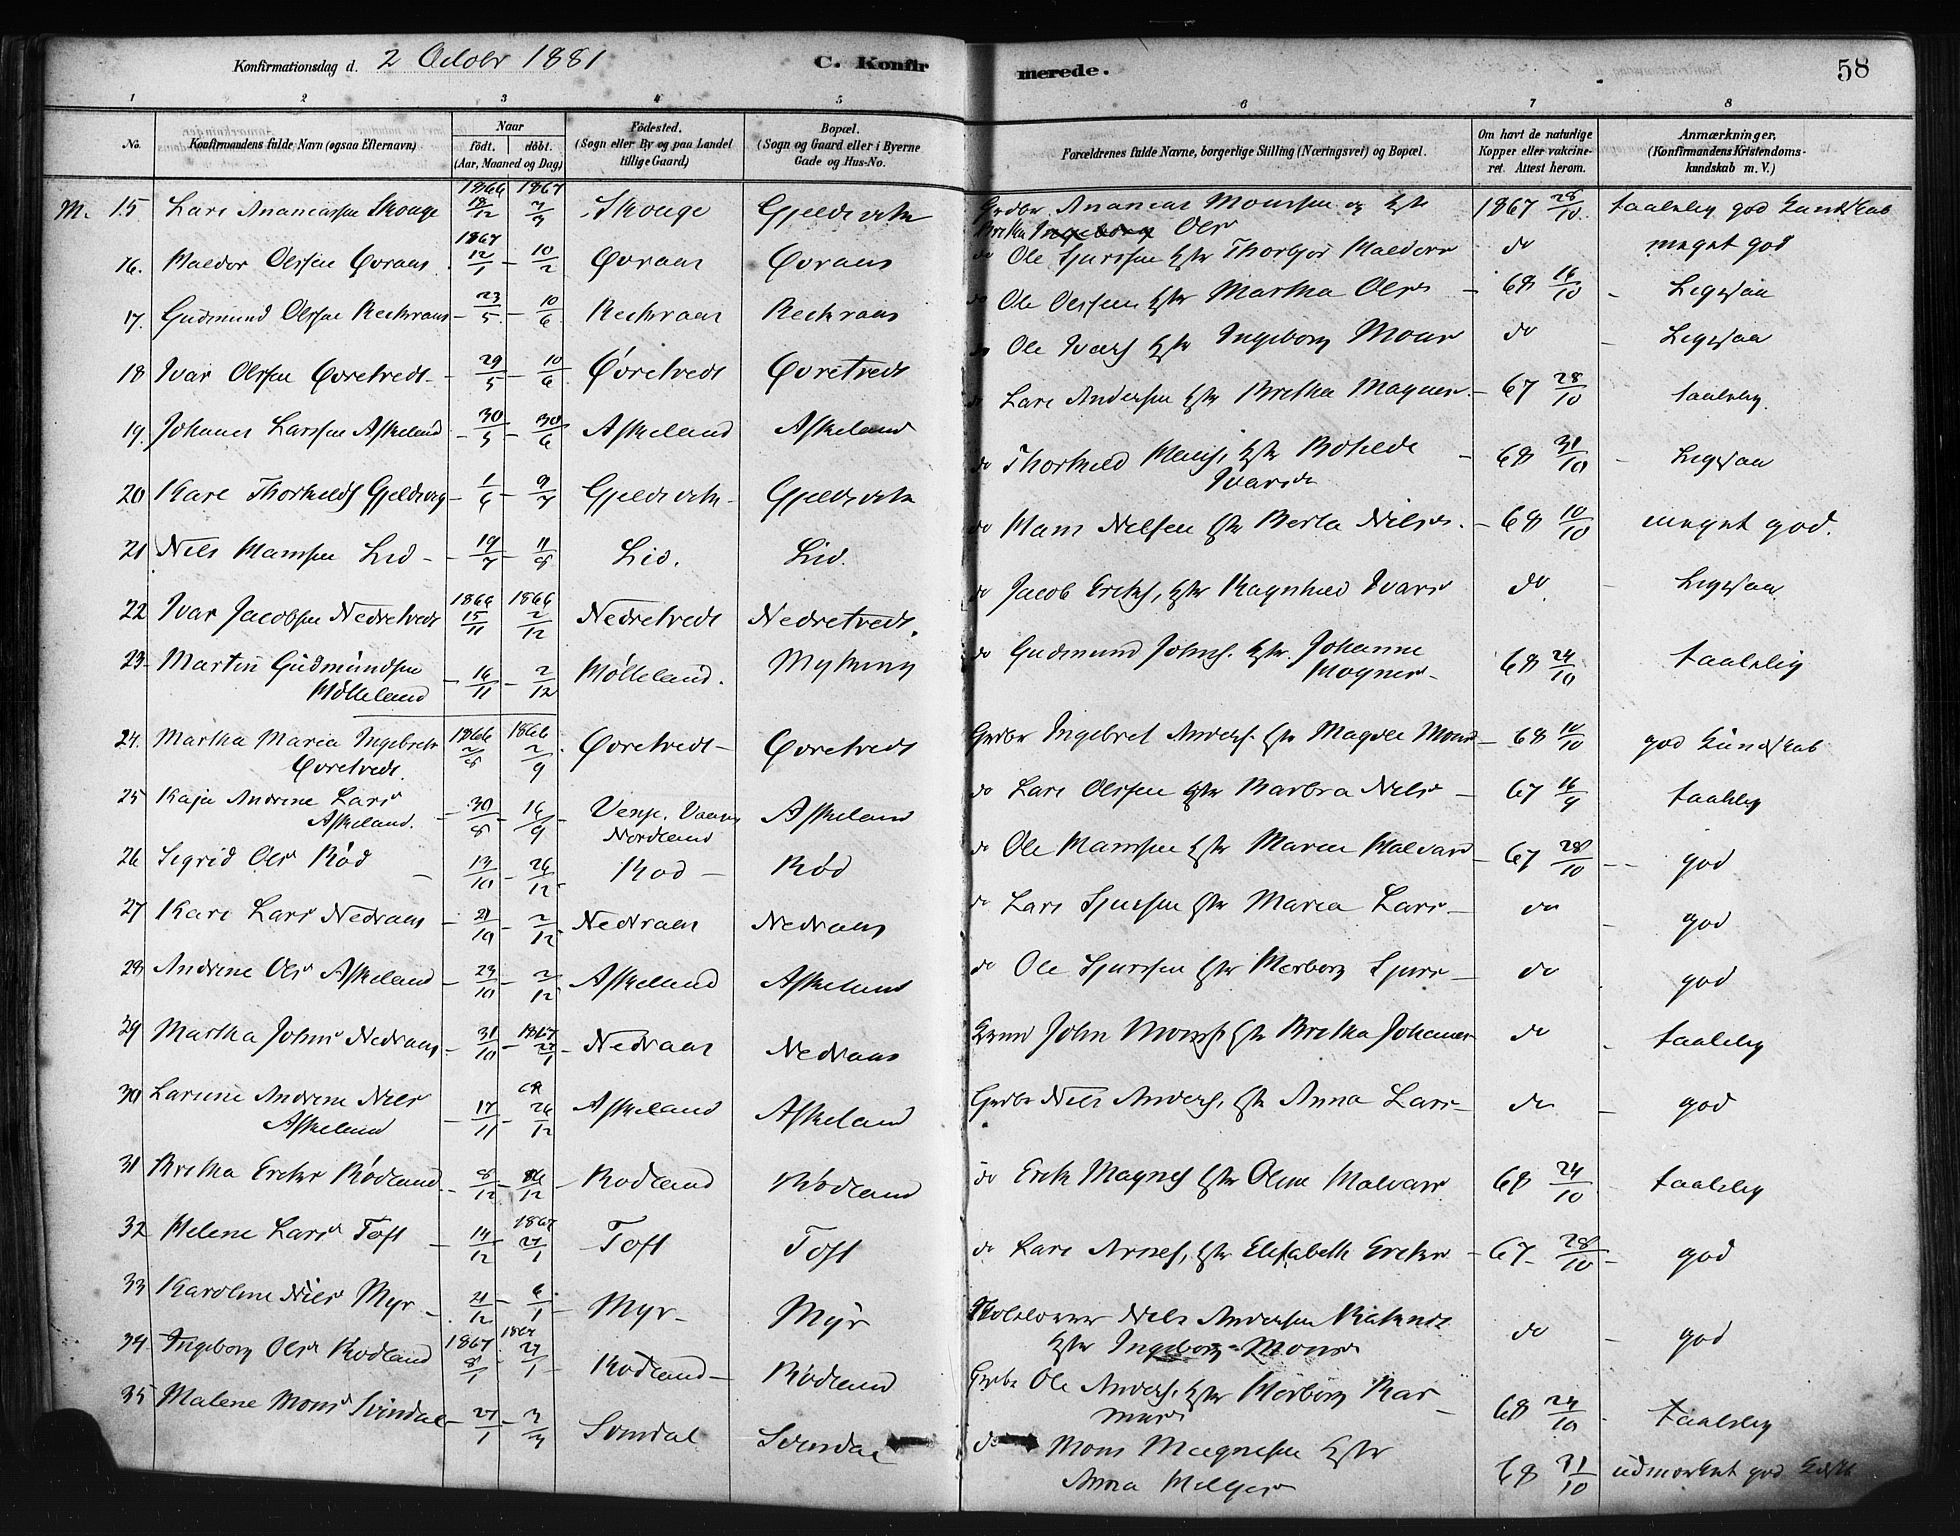 Konfirmationsdag d. 2 Octobr 1881 C. Konfirmerede. 58
1 2 3 4 5 6 7 8
No. Konfirmandens fulde Navn (ogsaa Efternavn) Naar født. døbt. (Aar, Maaned og Dag) Fødested. (Sogn eller By og paa Landet tillige Gaard) Bopæl. (Sogn og Gaard eller i Byerne Gade og Hus-No. Forældrenes fulde Navne, borgerlige Stilling (Næringsvei) og Bopæl. Om havt de naturlige Kopper eller vakcineret. Attest herom. Anmærkninger. (Konfirmandens Kristendomskundskab m. V.)
M. 15 Lars Ananiassen Skouge 1866 1867 Skouge Gjeldsvik Ananias Monssen og Hstr 1867 28/10 taalelig god Kundskab
Bretha Ingeborg Olsd
16. Haldor Olssen Øvraas 1867 12/1 – 10/2 Øvraas Øvraas do Ole Sjurssen Hstr Thorbjør Haldorsd do meget god
17. Gudmund Olssen Reckraas 23/5 – 10/6 Reckraas Reckraas do Ole Olssen Hstr Martha Olsd 68 16/10 Ligesaa
18 Ivar Olssen Øvretvedt 29/5 – 10/6 Øvretvedt Øvretvedt do Ole Ivars Hstr Ingeborg Monsd do Ligesaa
19. Johanes Larssen Askeland 30/5 – 30/6 Askeland Askeland do Lars Anderssen Hstr Bretha Magnesd 67 28/10 taalelig
20 Lars Thorkelds Gjeldsvig 1/6 – 9/7 Gjeldsvik Gjeldsvik do Thorkild Hans, Hstr Bothilde Ivarsd 68 31/10 Ligesaa
21 Nels Hanssen Lid 19/7 – 11/8 Lid. Lid. do Hans Nelsen Hstr Berta Nilsd. 68 10/10 meget god.
22 Ivar Jacobsen Nedretvedt 1866 15/11 1866 2/12 Nedretvedt Nedretvedt. do Jacob Eriks, Hstr Ragnhild Ivarsd do Ligesaa
23 Martin Gudmundsen Mølleland 16/11 – 2/12 Mølleland. Myking do Gudmund Johns. Hstr. Johanne Mognesd 68 24/10 taalelig
24. Martha Maria Ingebretsd Øvretvedt. 1866 2/8 1866 2/9 Øvretvedt Øvretvedt Ingebret Anders. Hstr Magdele Monsd 68 10/10 god Kundskab
25 Kaja Andrine Larsd Askeland. 30/8 – 16/9 Nordland Askeland do Lars Olssen Hstr Barbra Nelsd 67 16/9 taalelig
26 Sigrid Olsd Rød 13/10 – 26/12 Rød Rød do Ole Hanssen Hstr Maren Halvardsd 67 28/10 god
27 Kari Larsd Nedraas 21/10 – 2/12 Nedraas Nedraas do Lars Sjursen Hstr Maria Larsd do god
28 Andrine Olsd Askeland 23/10 – 2/12 Askeland Askeland do Ole Sjurssen Hstr Herborg Sjursd do god
29 Martha Johnsd Nedraas 31/10 – 1867 27/1 Nedraas Nedraas John Mons Hstr Bretha Johannesd do taalelig
30 Larsine Andrine Nelsd Askeland 17/11 26/12 Askeland Askeland Nels Anders, Hstr Anna Larsd do god
31 Bretha Eriksd Rødland 8/12 26/12 Rødland Rødland do Erik Magnes Hstr Oline Halvarsd 68 24/10 taalelig
32 Helene Larsd Toft 14/12 1867 27/1 Toft Toft do Lars Arnes, Hstr Elisabeth Eriksd 67 28/10 god
33 Karoline Nilsd Myr 21/12 – 6/1 Myr Myr Nels Andersen Hstr Ingeborg Monsd do god
34. Ingeborg Olsd Rødland 1867 8/1 1867 27/1 Rødland Rødland Ole Anders. Hstr Herborg Rasmusd 68 24/10 taalelig
35 Malene Monsd Svindal 27/1 – 3/3 Svindal Svindal do Mons Magnesen Hstr Anna Helgesd 68 31/10 udmærket god Kdsk